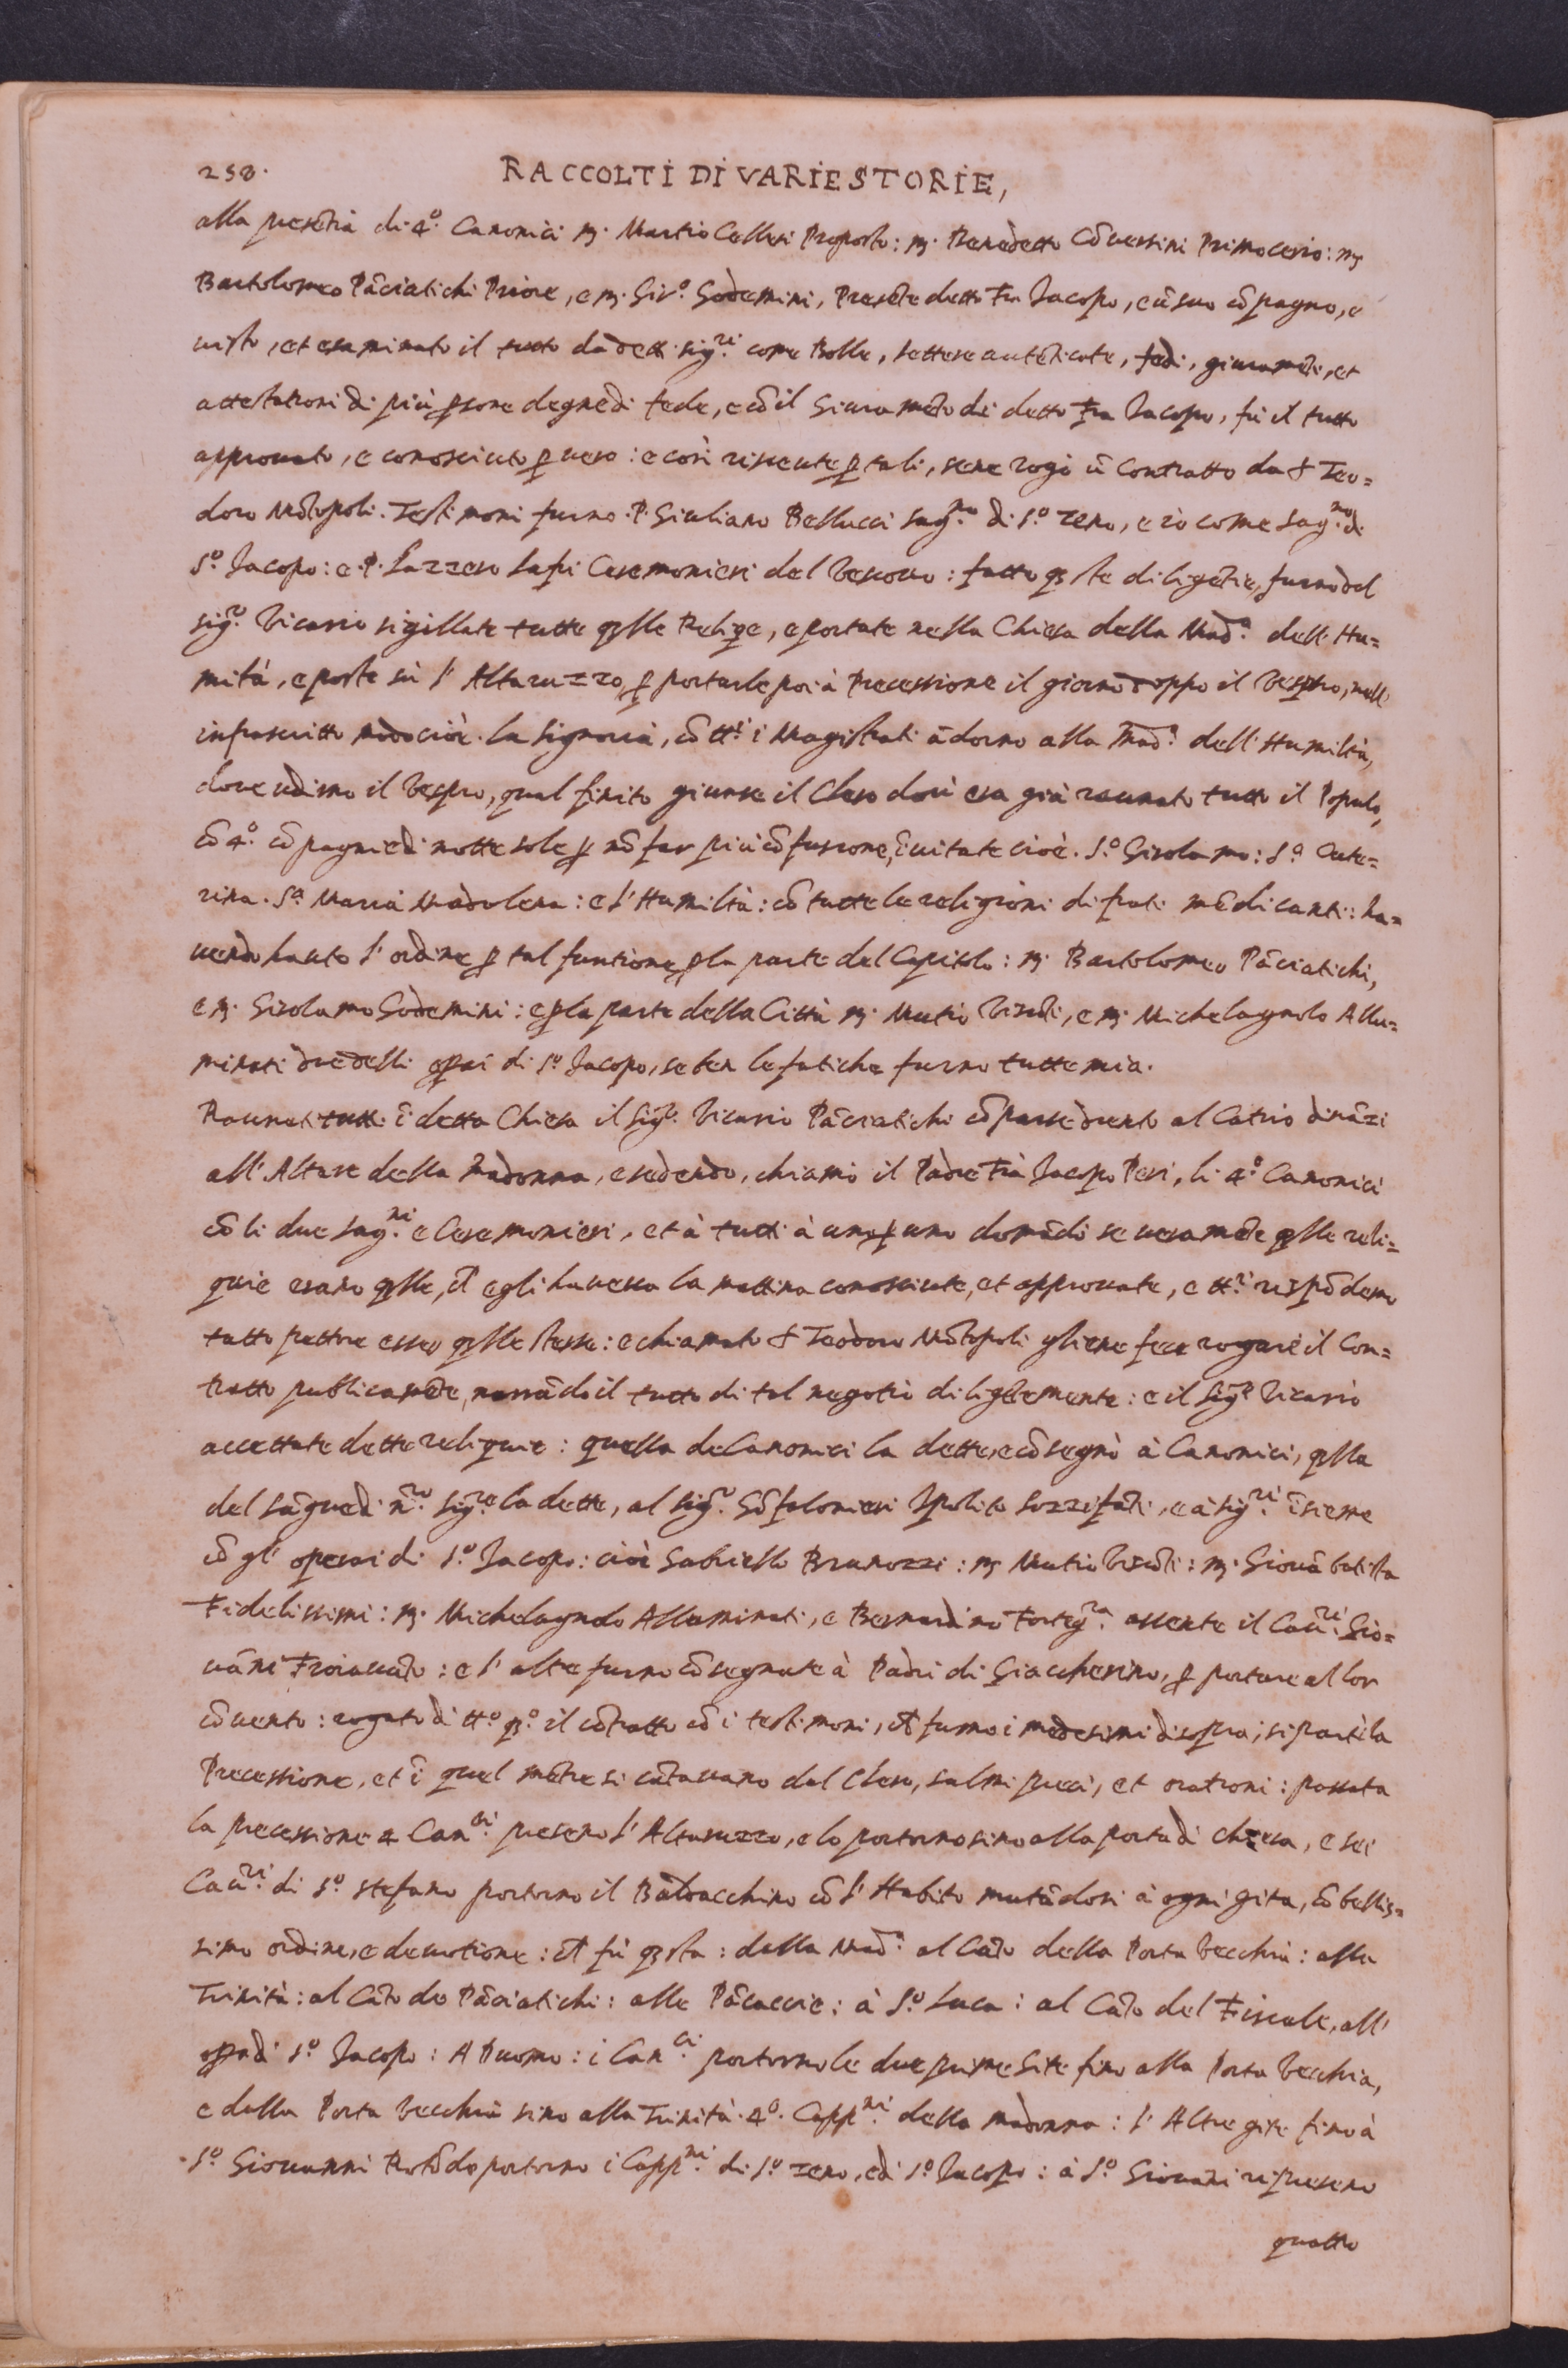 258.
RACCOLTI DI VARIE STORIE,
alla presētia di 4.º Canonici m. Martio Cellesi Proposto: m. Benedetto Cōversini Primocerio: m
Bartolomeo Pāciatichi Priore, e m. Gir.º Godemini, Presēte detto Fra Jacopo, e ū suo cōpagno, e
visto, et esaminato il tutto da detti sig.ri come Bolle, lettere autēticate, fedi, giuramēti, et
attestationi di più ꝑsone degne di fede, e cō il Giuramēto di detto Fra Jacopo, fù il tutto
approvato, e conosciuto ꝑ vero: e così ricevute ꝑ tali, sene rogò ū Contratto da S Teo=
doro Mōtopoli. Testimoni furno P. Giuliano Bellucci Sag.no di S.º Zeno, e io come Sag.no di
S.º Jacopo: e P. Lazzero Lapi Ceremonieri del Vescovo: fatto qste diligētie, furno dal
sig.re Vicario sigillate tutte qlle Reliqe, e portate nella Chiesa della Mad.ª dell' Hu=
mità, e poste sù l' Altaruzzo, ꝑ portarle poi à Precessione il giorno doppo il Vespro, nell'
infrascritto modo cioè. La Signoria, cō tt.i i Magistrati ādorno alla Mad.ª dell' Humiltà,
dove udirno il Vespro, qual finito giunse il Clero dov' era già raunato tutto il Populo,
cō 4.º cōpagnie di notte sole ꝑ nō far più cōfusione, īvitate cioè. S.º Girolamo: S.ª Cate=
rina. S.ª Maria Madalena: e l' Humiltà: cō tutte le religioni di frati mēdicanti: ha=
vendo hauto l' ordine ꝑ tal funtione ꝑ la parte del Capitolo: m. Bartolomeo Pāciatichi,
e m. Girolamo Godemini: e ꝑ la parte della Città m. Mutio Viscōti, e m. Michelagnolo Allu=
minati due delli oꝑai di S.º Jacopo, se ben le fatiche furno tutte mia.
Raunati tutti ī detta Chiesa il Sig.re Vicario Pāciatichi cōparse drento al Catrio dināzi
all' Altare della Madonna, e sedendo, chiamò il Padre Frà Jacopo Peri, li 4.º Canonici
cō li due Sag.ni e Ceremonieri, et à tutti à uno ꝑ uno domādò se veramēte qlle reli=
quie erano qlle, ch' egli haveva la mattina conosciute, et approvate, e tt.i rispōderno
tatto pettore esser qlle stesse: e chiamato S Teodoro Mōtopoli gliene fece rogare il Con=
tratto publicamēte, narrādo il tutto di tal negotio diligētemente: e il Sig.re Vicario
accettate dette reliquie: quella de Canonici la dette, e cōsegnò à Canonici, qlla
del Sāgue di n.ro sig.re la dette, al sig.r Gōfalonieri Ipolito Sozzifāti, e à sig.ri īsieme
cō gl' operai di S.º Jacopo: cioè Gabriello Brunozzi: m Mutio Viscōti: m. Giovābatista
Fidelissimi: m. Michelagnolo Alluminati, e Bernardino Forteg.ra assente il Cav.ri Gio=
vāni Froiavāto: e l' altre furno cōsegnate à Padri di Giaccherino, ꝑ portare al lor
cōvento: rogato di tt.º q.º il cōtratto cō i testimoni, ch' furno i medesimi di sopra, si partì la
Precessione, et ī quel mētre si cātavano dal Clero, salmi preci, et orationi: passata
la precessione 4 Can.ci presero l' Altaruzzo, e lo portorno sino alla porta di chiesa, e sei
Cav.ri di S.º Stefano portorno il Baldacchino cō l' Habito mutādosi à ogni gita, cō bellis=
simo ordine, e devotione: ch' fù qsta: dalla Mad.ª al Cāto della Porta Vecchia: alla
Trinità: al Cāto de Pāciatichi: alle Pācaccie: à S.º Luca: al Cāto del Fiscale, all'
oꝑa di S.º Jacopo: A Duomo: i Can.ci portorno le due prime Gite fino alla Porta Vecchia,
e dalla Porta Vecchia sino alla Trinità 4.º Capp.ni della Madonna: l' Altre gite fino à
S.º Giovanni Rotōdo portorno i Capp.ni di S.º Zeno, e di S.º Jacopo: à S.º Giovāni ripresero
quattro